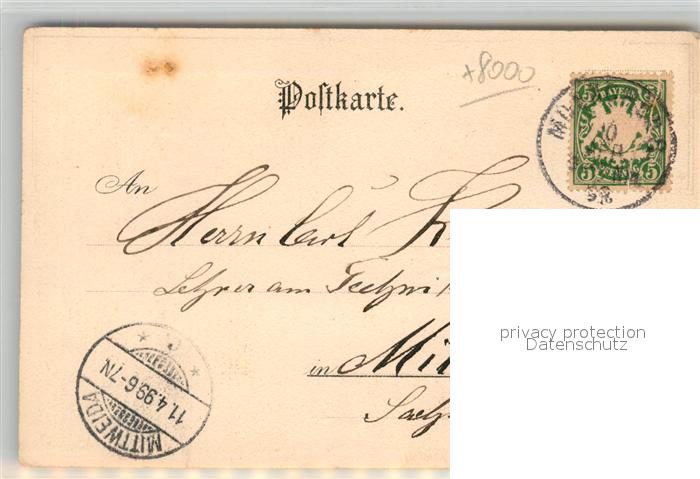 +8000
Postkarte.
BAYERN
5 5
5 5
10
An
Herrn Carl
Lehrer am Techni
in Mit
Sachs
MITTWEIDA
11.4.99.6-7N
privacy protection
Datenschutz